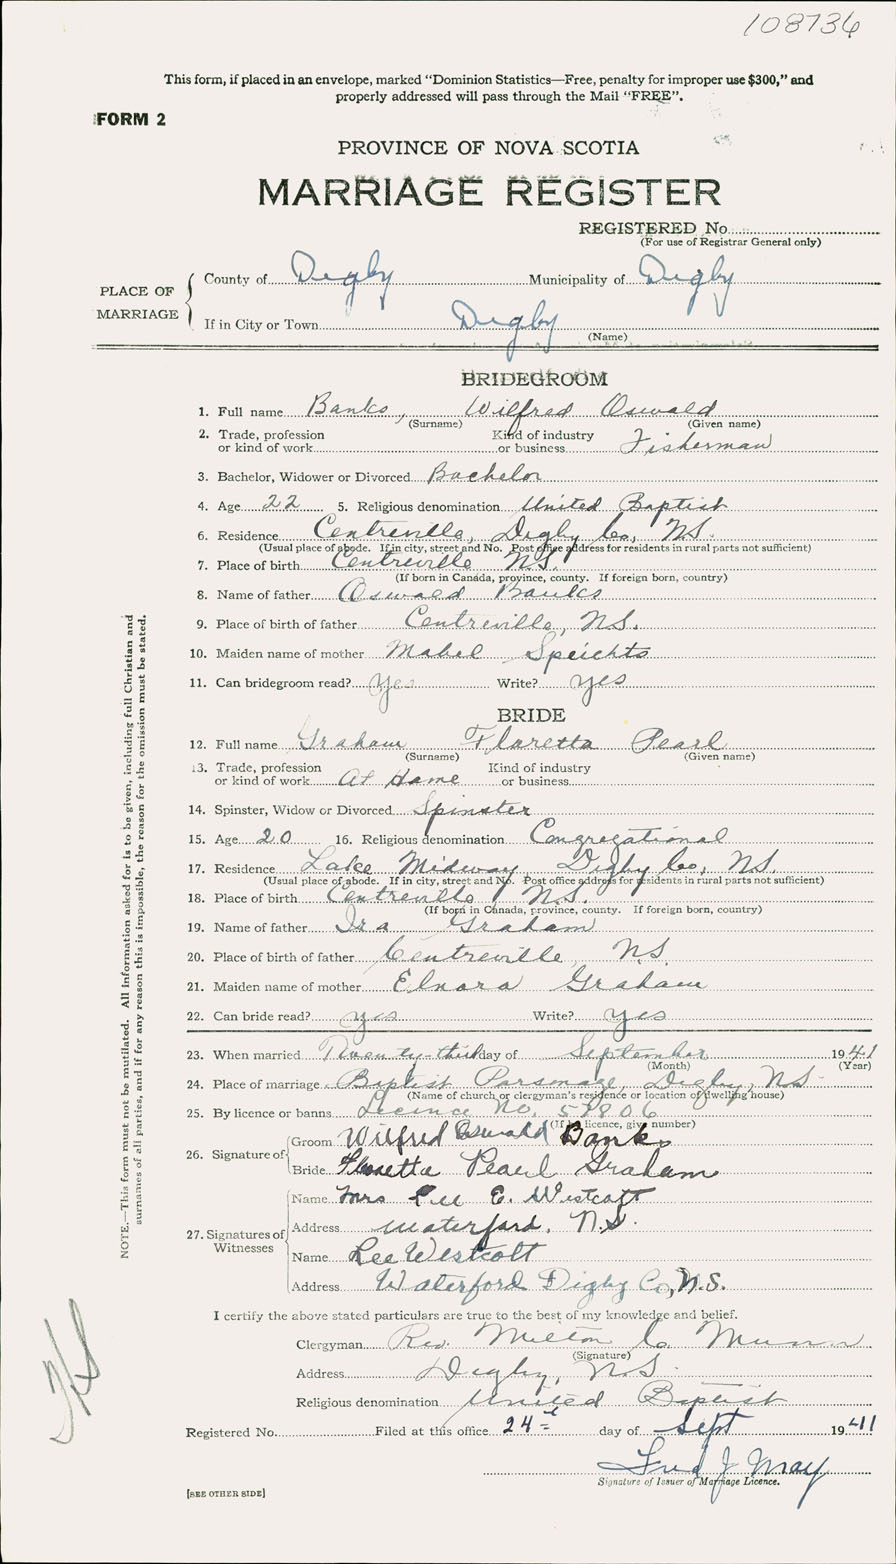 108736
This form, if placed in an envelope, marked "Dominion Statistics—Free, penalty for improper use $300," and
properly addressed will pass through the Mail "FREE".
FORM 2
PROVINCE OF NOVA SCOTIA
MARRIAGE REGISTER
REGISTERED No.
(For use of Registrar General only)
PLACE OF MARRIAGE
County of Digby Municipality of Digby
If in City or Town Digby
(Name)
BRIDEGROOM
1. Full name Banks, Wilfred Oswald
(Surname) (Given name)
2. Trade, profession or kind of work Kind of industry or business Fisherman
3. Bachelor, Widower or Divorced Bachelor
4. Age 22 5. Religious denomination United Baptist
6. Residence Centreville, Digby Co, N.S.
(Usual place of abode. If in city, street and No. Post office address for residents in rural parts not sufficient)
7. Place of birth Centreville N.S.
(If born in Canada, province, county. If foreign born, country)
8. Name of father Oswald Banks
9. Place of birth of father Centreville, N.S.
10. Maiden name of mother Mabel Speichts
11. Can bridegroom read? Yes Write? yes
BRIDE
12. Full name Graham Floretta Pearl
(Surname) (Given name)
13. Trade, profession or kind of work At Home Kind of industry or business
14. Spinster, Widow or Divorced Spinster
15. Age 20 16. Religious denomination Congregational
17. Residence Lake Midway Digby Co, N.S.
(Usual place of abode. If in city, street and No. Post office address for residents in rural parts not sufficient)
18. Place of birth Centreville N.S.
(If born in Canada, province, county. If foreign born, country)
19. Name of father Ira Graham
20. Place of birth of father Centreville, N.S.
21. Maiden name of mother Elnora Graham
22. Can bride read? yes Write? yes
23. When married Twenty-third day of September 1941
(Month) (Year)
24. Place of marriage Baptist Parsonage, Digby, N.S.
(Name of church or clergyman's residence or location of dwelling house)
25. By licence or banns Licence No. 57806
(If by licence, give number)
26. Signature of
Groom Wilfred Oswald Banks
Bride Floretta Pearl Graham
27. Signatures of Witnesses
Name Mrs Lee E. Westcott
Address Waterford, N.S.
Name Lee Westcott
Address Waterford Digby Co, N.S.
I certify the above stated particulars are true to the best of my knowledge and belief.
Clergyman Rev. Milton C. Munro
(Signature)
Address Digby, N.S.
Religious denomination United Baptist
Registered No. Filed at this office 24 day of Sept 1941
Fred J May
Signature of Issuer of Marriage Licence.
[SEE OTHER SIDE]
NOTE.—This form must not be mutilated. All Information asked for is to be given, including full Christian and
surnames of all parties, and if for any reason this is impossible, the reason for the omission must be stated.